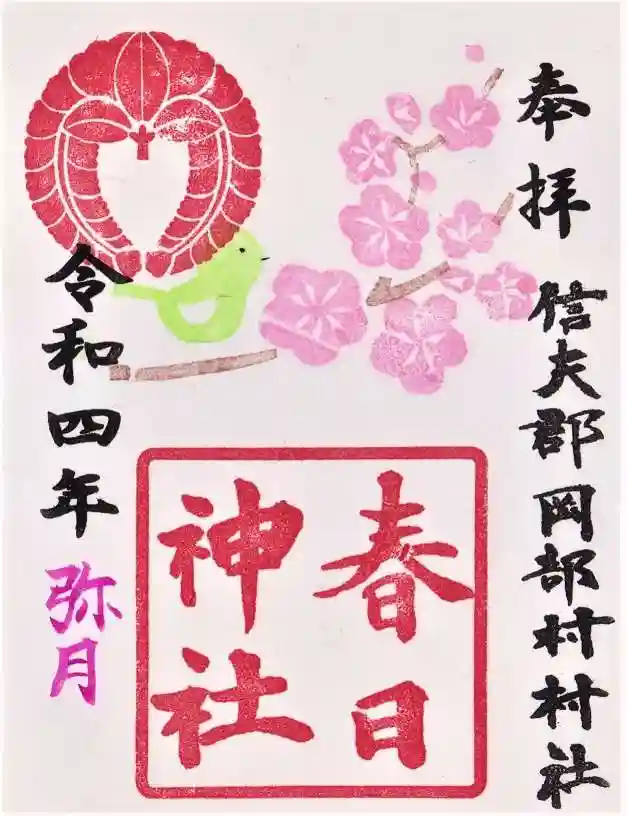 奉拝
信夫郡岡部村村社
春日
神社
令和四年
弥月